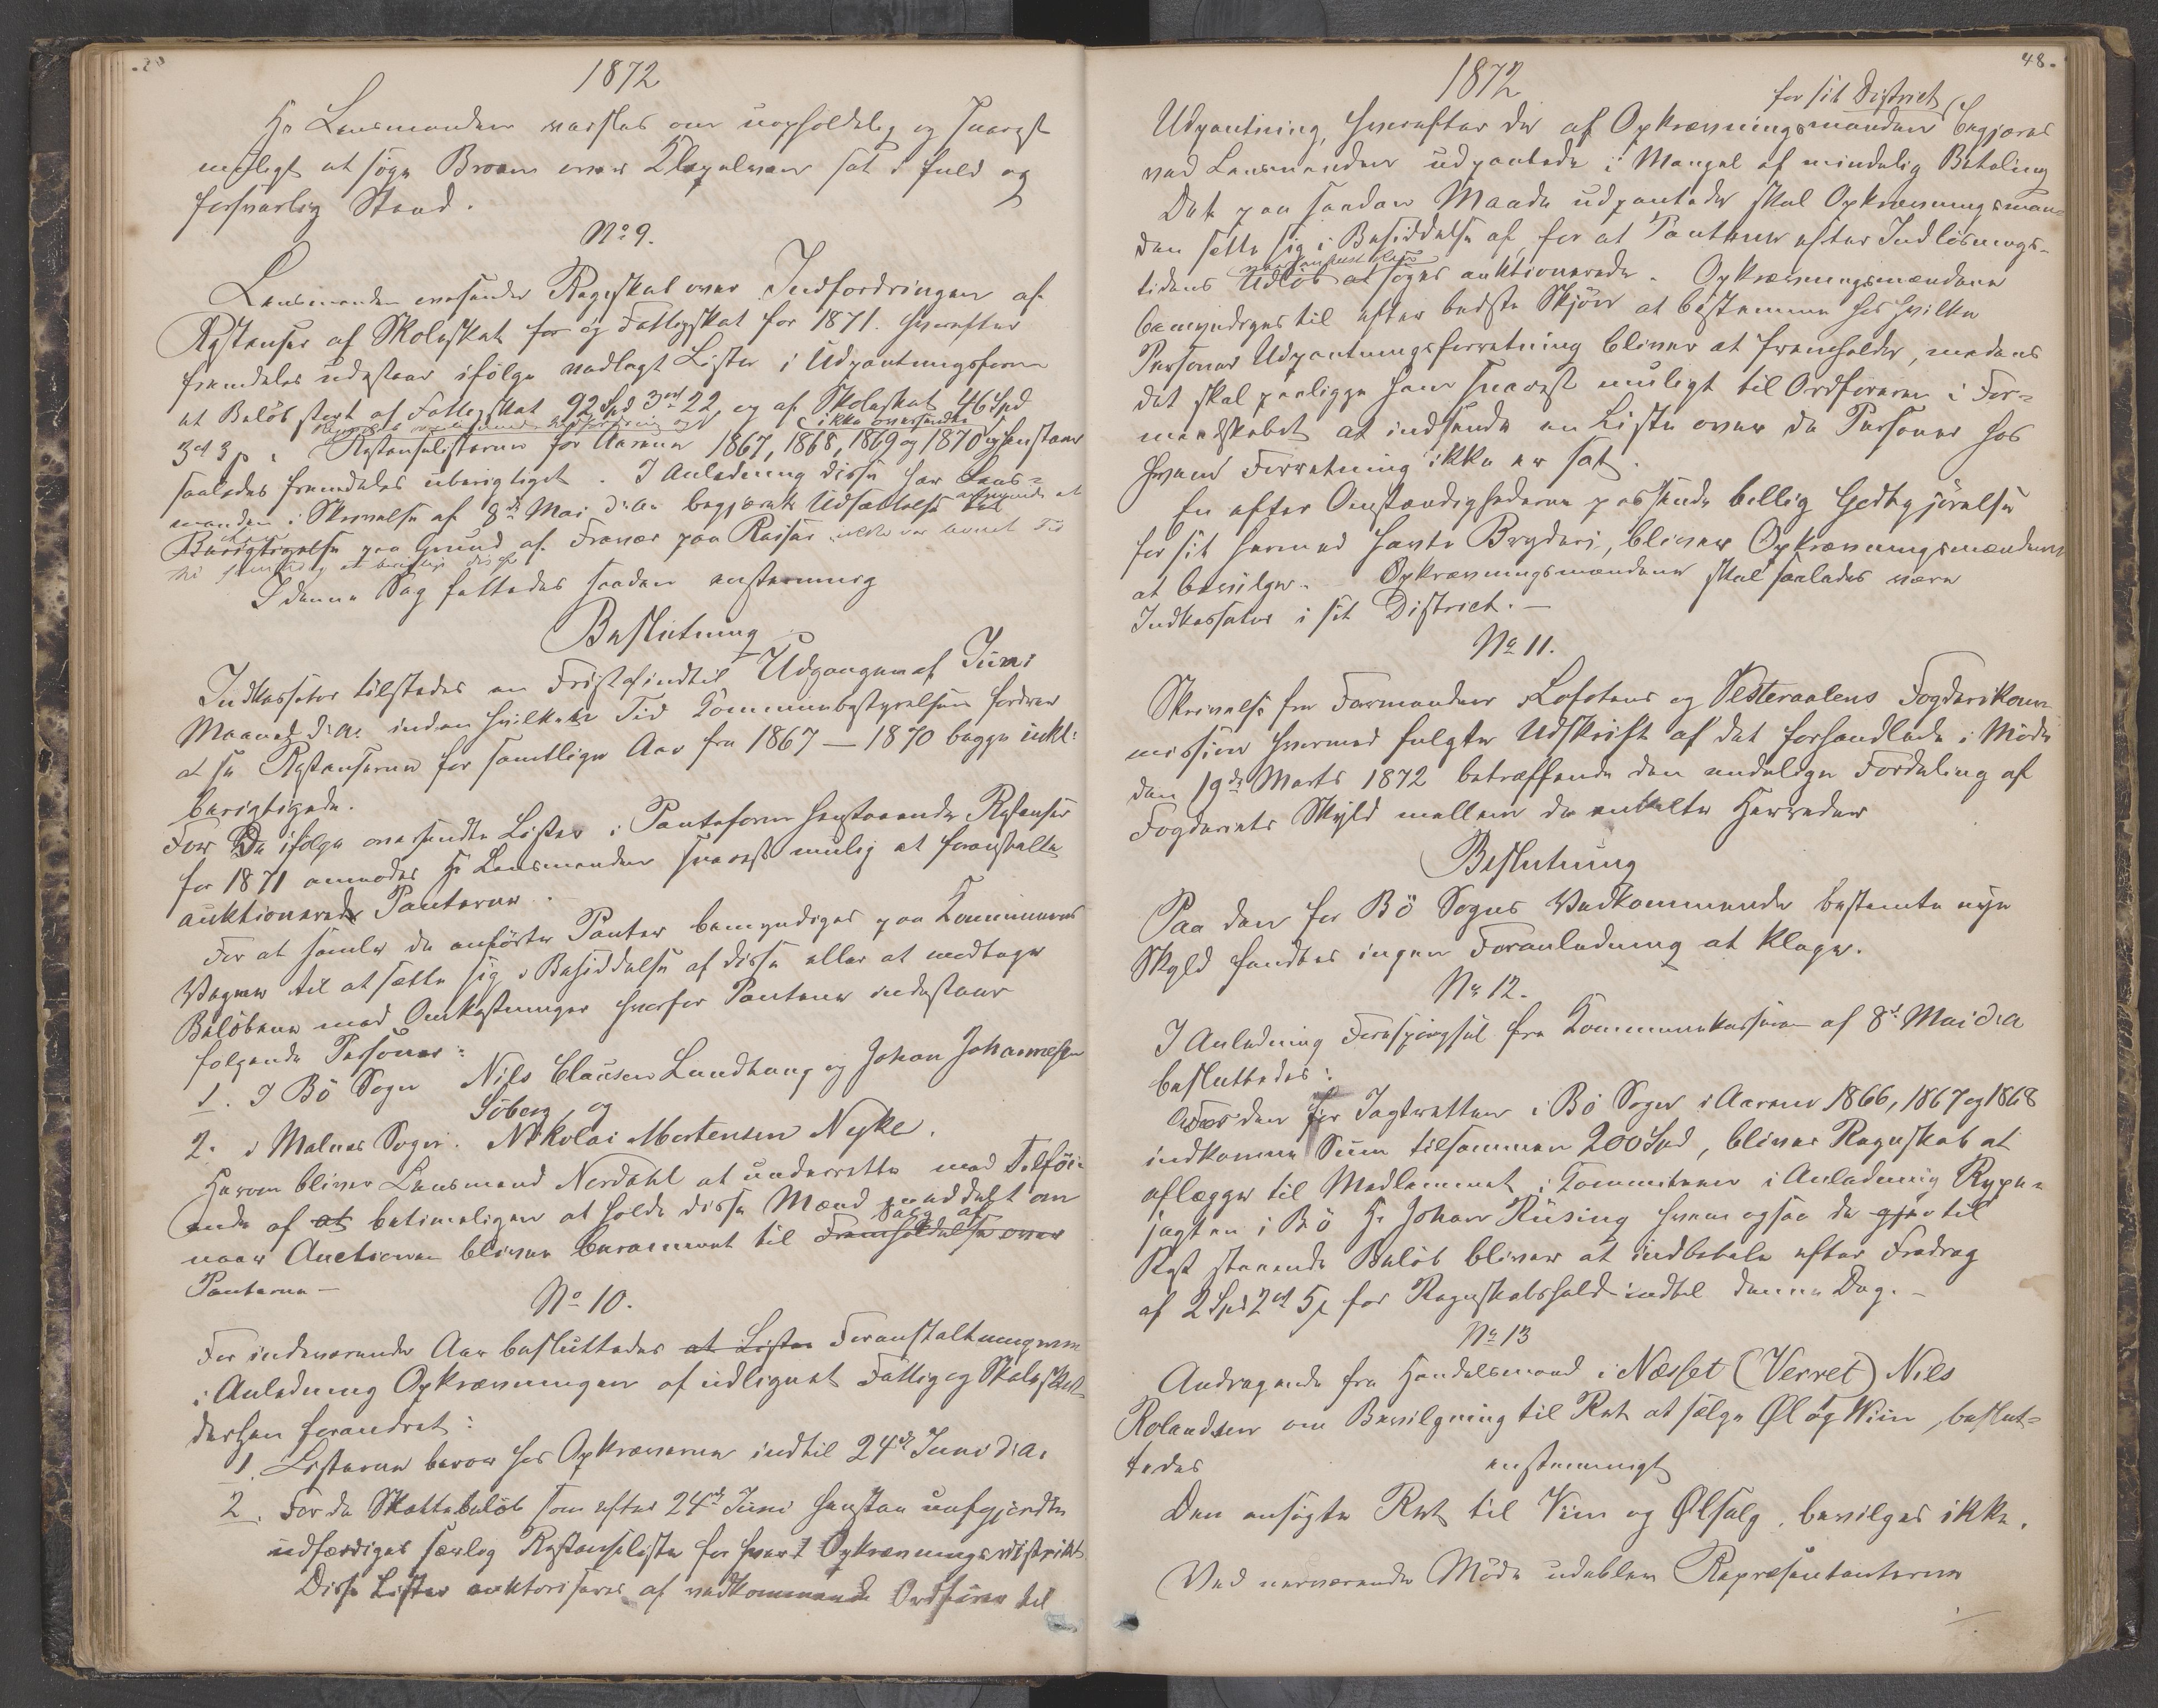 1872
Hr Lensmanden varsles om uopholdelig og snarest
muligt at søge Broen over Klepelven sat i fuld og
forsvarlig Stand.
No 9.
Lensmanden oversender Regnskab over Indfordringen af
Restanser af Skoleskat for og Fattigskat for 1871. hvorefter
fremdeles udestaar ifølge vedlagt Lister i Udpantningsform
et Beløb stort af Fattigskat 92 Spd 3 ort 22, og af Skoleskat 46 Spd
ikke oversendte
3 ort 3 s. Restanselisterne for Aarene 1867, 1868, 1869 og 1870 henstaar
saaledes fremdeles uberigtiget. I Anledning disse har Lens-
manden i Skrivelse af 8de Mai d.a. begjæret Udsættelse
Berigtigelse paa Grund af Fravær paa Reiser
I denne Sag fattedes saadan enstemmig
Beslutning
Indkassator tilstedes en Frist indtil Udgangen af Juni
Maaned d.a. inden hvilken Tid Kommunebestyrelsen fordrer
at se Restanserne for samtlige Aar fra 1867 – 1870 begge inkl:
berigtigede.
For De ifølge oversendte Lister i Panteform henstaaende Restanser
for 1871 anmodes Hr Lensmanden snarest mulig at foranstalte
auktionerede Panterne.
For at samle de anførte Panter bemyndiges paa Kommunens
Vegne til at sætte sig i Besiddelse af disse eller at modtage
Beløbene med Omkostninger hvorfor Pantene indestaar
følgende Personer:
1. I Bö Sogn Nils Clausen Lundhaug og Johan Johannesen
Söberg, og
2. i Malnes Sogn. Nikolai Mortensen Nyke.
Herom bliver Lensmand Nordahl at underrette med Tilföi-
ende af at betimeligen at holde disse Mænd meddelt om
Salg af
naar Auctionen bliver berammet til Fremholdelse over
Panterne –
No 10.
For indeværende Aar besluttedes at Lister Foranstaltningerne
i Anledning Opkrævningen af udlignet Fattig og Skoleskat
derhen forandret:
1. Listerne beror hos Opkræverne indtil 24de Juni d.a.
2. For de Skattebeløb som efter 24de Juni henstaa uafgjordte
udfærdiges særlig Restanseliste for hvert Opkrævningsdistrikt
Disse Lister auktoriseres af vedkommende Ordfører til
48.
1872
for sit District
Udpantning, hvorefter de af Opkrævningsmanden begjæres
ved Lensmanden udpantede i Mangel af mindelig Betaling
Det paa saadan Maade udpantede skal Opkrævningsman-
den sætte sig i Besiddelse af for at Pantene efter Indløsnings-
tidens Udløb at søges auktionerede. Opkrævningsmændene
bemyndiges til efter bedste Skjön at bestemme hos hvilke
Personer Udpantningsforretning bliver at fremholde, medens
det skal paaligge ham snarest muligt til Ordföreren i For-
mandskabet at indsende en Liste over de Personer hos
hvem Forretning ikke er sat.
En efter Omstændighederne passende billig Godtgjörelse
for sit hermed havte Bryderi, bliver Opkrævningsmændene
at bevilge. Opkrævningsmændene skal saaledes være
Indkassator i sit District. –
No 11.
Skrivelse fra Formanden i Lofotens og Vesteraalens Fogderikom-
mission hvormed fulgte Udskrift af det forhandlede i Möde
den 19de Marts 1872 betræffende den endelige Fordeling af
Fogderiets Skyld mellem de enkelte Herreder
Beslutning
Paa den for Bö Sogns Vedkommende bestemte nye
Skyld fandtes ingen Foranledning at klage.
No 12.
I Anledning Forespörgsel fra Kommunekasserer af 8de Mai d.a
besluttedes:
den for Jagtretten i Bö Sogn i Aarene 1866, 1867 og 1868
indkomne Sum tilsammen 200 Spd, bliver Regnskab at
aflægge til Medlemmet i Komiteen i Anledning Rype-
jagten i Bö Hr Johan Rüsing hvem ogsaa de til
Rest staaende Beløb bliver at indbetale efter Fradrag
af 2 Spd 2 ort 5 s for Regnskabshold indtil denne Dag. –
No 13
Andragende fra Handelsmand i Næsset (Verret) Nils
Rolandsen om Bevilgning til Ret at sælge Øl og Viin, beslut-
tedes enstemmigt
Den ansögte Ret til Viin og Ølsalg, bevilges ikke.
Ved nærværende Möde udebleve Repræsentanterne